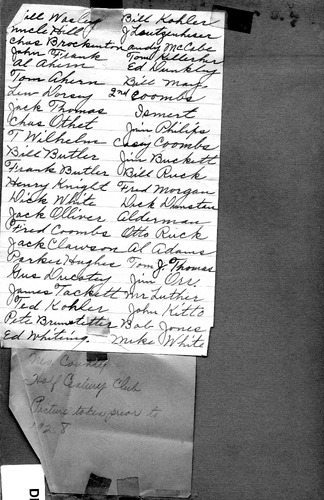 Bill Wasley Bill Kohler
Uncle Bill J Loutzenhiser
Chas Brockenton Andy McCabe
John Frank Tom Kelleher
Al Ahern Ed Dunkley
Tom Ahern Bill May
Lew Dorsey 2nd Coombs
Jack Thomas Ismert
Chas Othet Jim Philips
T Wilhelm Casy Coombs
Bill Butler Jim Buckett
Frank Butler Bill Rusk
Henry Knight Fred Morgan
Dick White Dick Dunster
Jack Olliver Alderman
Fred Coombs Otto Rick
Jack Clawson Al Adams
Perkes Hughes Tom J. Thomas
Gus Ducatey Jim Orr
James Tackett Mr Luther
Ted Kohler John Kitto
Pete Brunstetter Bob Jones
Ed Whiting. Mike White
County
Half Century Club
Picture taken prior to
1928